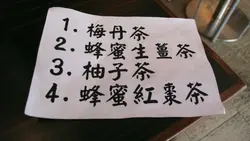 1. 梅丹茶
2. 蜂蜜生薑茶
3. 柚子茶
4. 蜂蜜紅棗茶